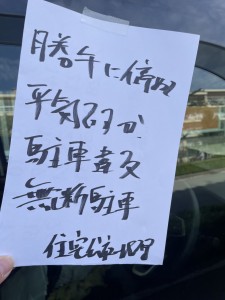 勝手に停め
平気ですか
駐車違反
無断駐車
住宅